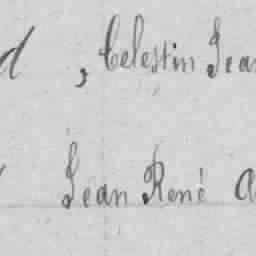 d , Celestin Jean
Jean René